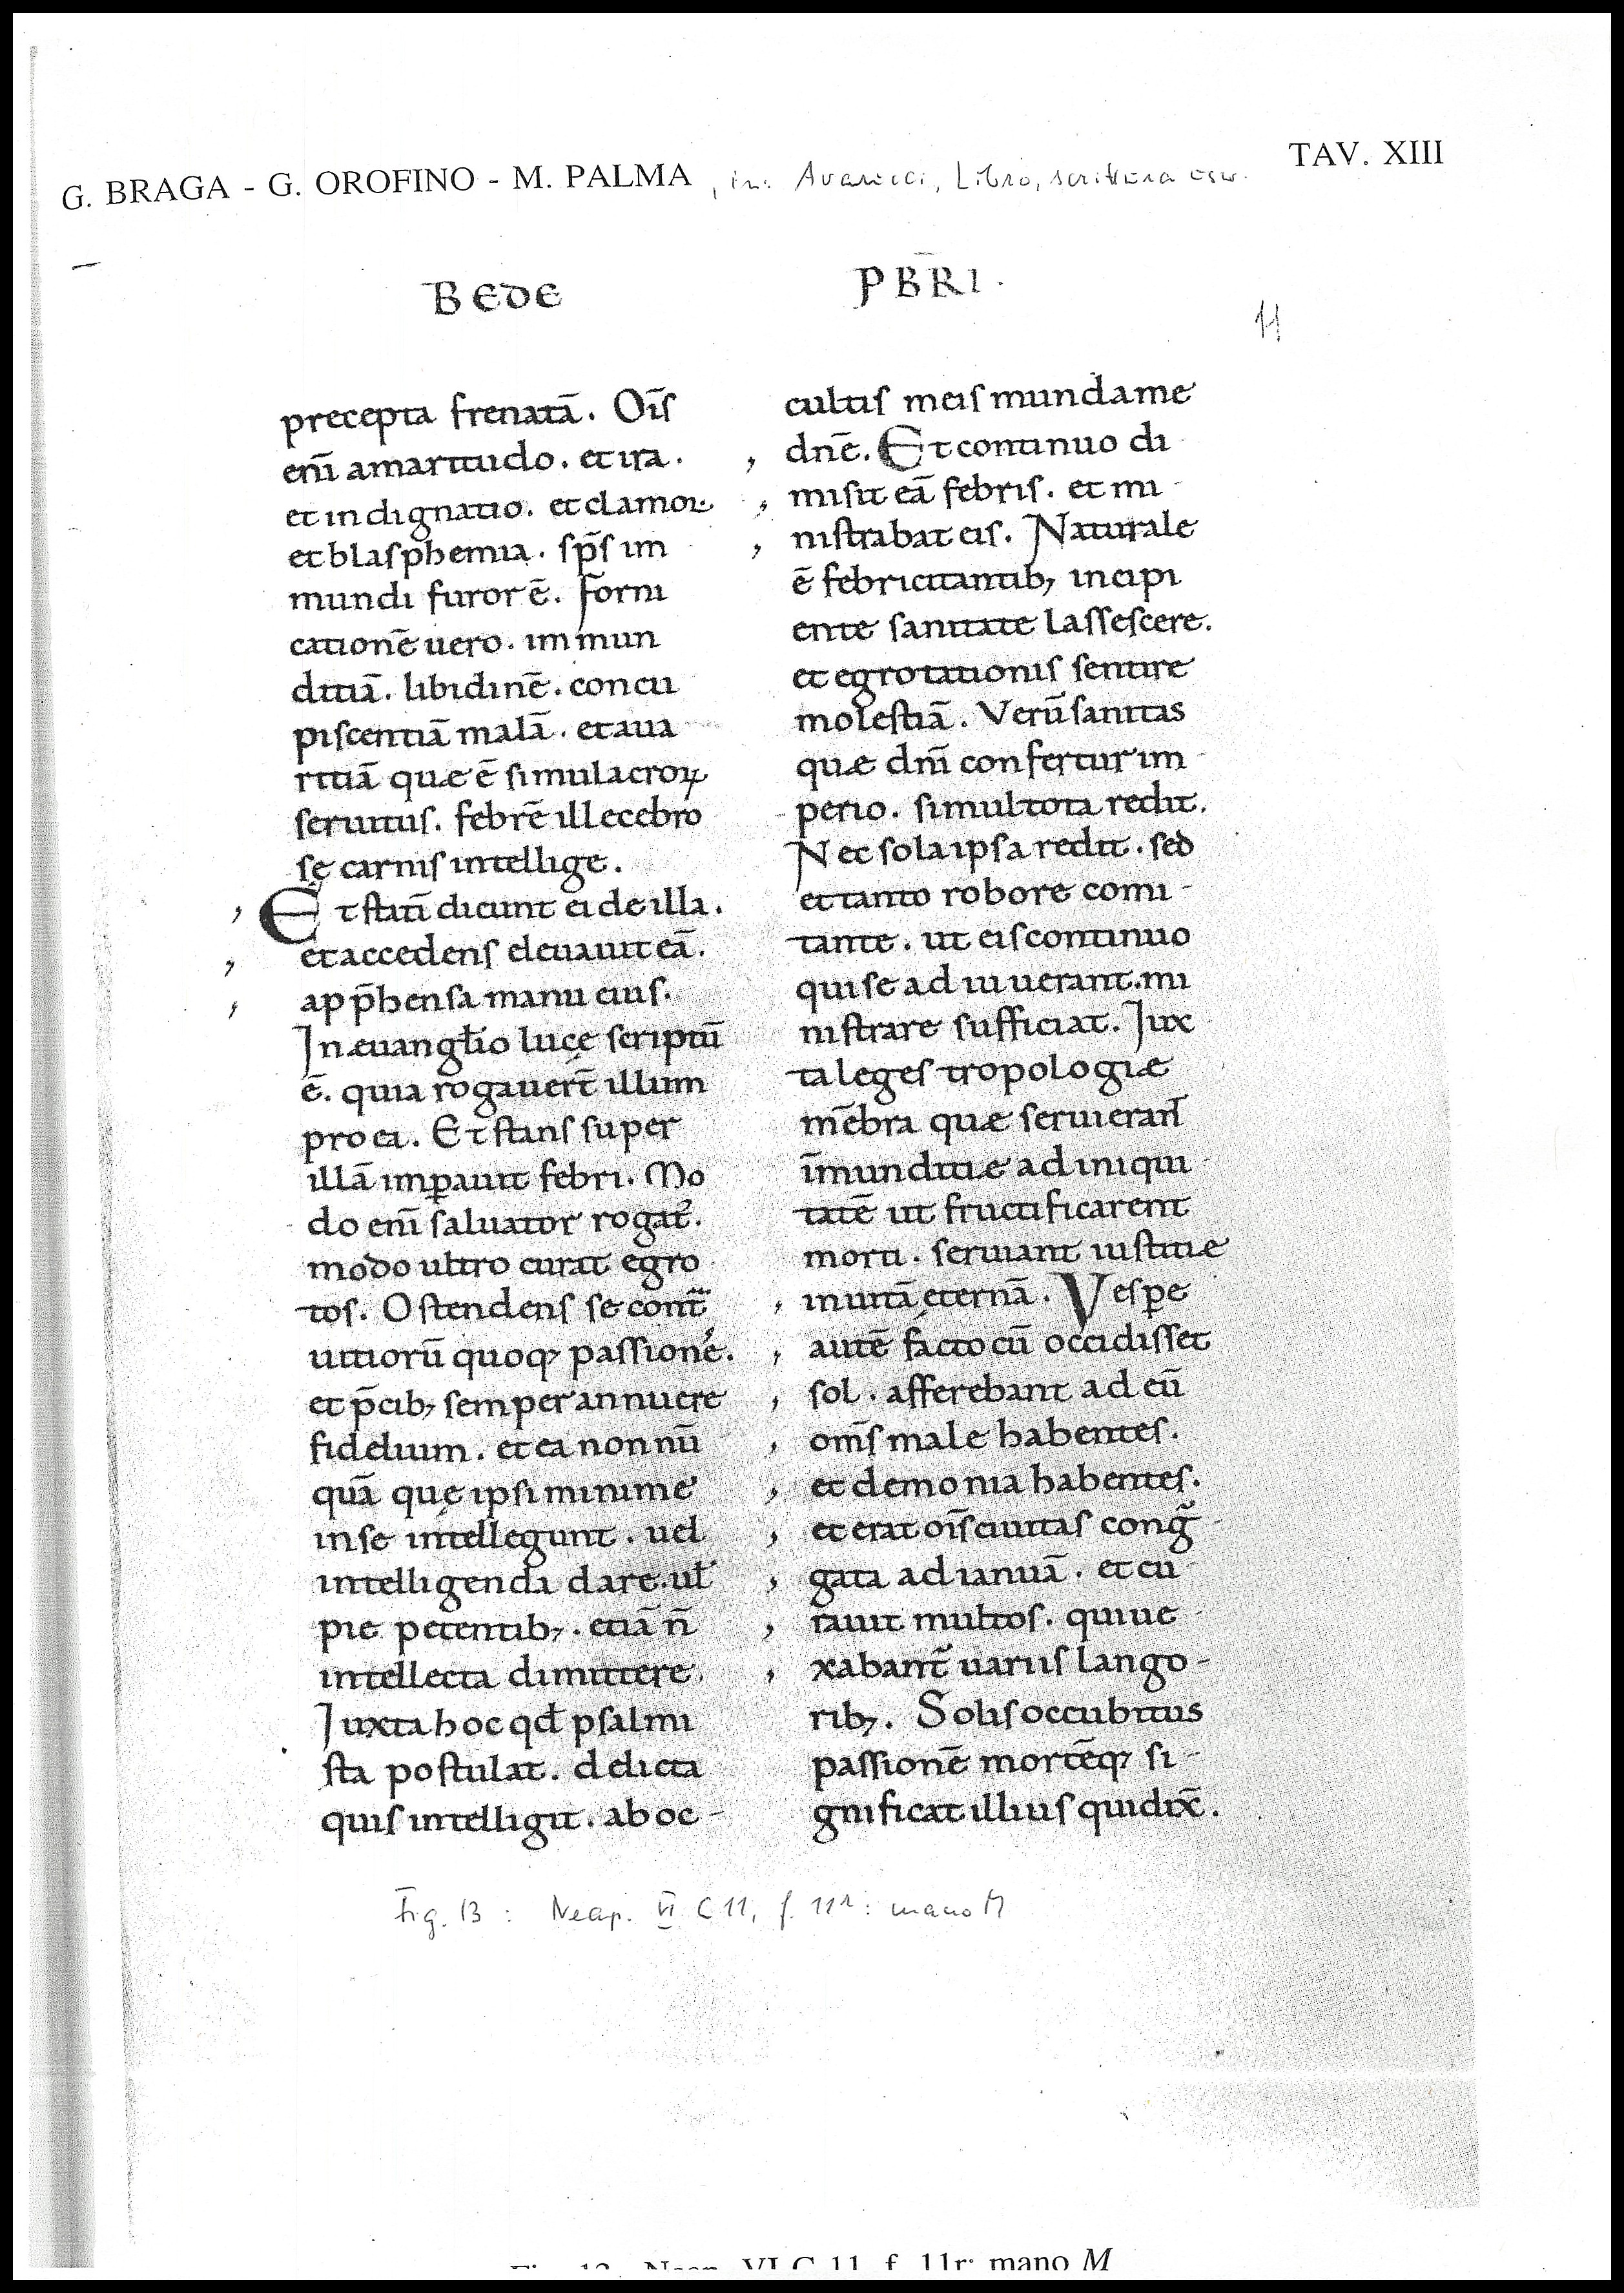 G. BRAGA - G. OROFINO - M. PALMA , in: Avarucci, Libro, scrittura esw.
TAV. XIII
BEDE
PB̄RI.
11
precepta frenatā. Oīſ
enī amaritudo. et ira.
et indignatio. et clamor.
et blaſphemia. ſp̄ſ im
mundi furor ē. forni
cationē uero. immun
ditiā. libidinē. concu
piſcentiā malā. et aua
ritiā quæ ē ſimulacroꝝ
ſeruituſ. febrē illecebro
ſę carniſ intellige.
Et ſtatī dicunt ei de illa.
et accedenſ eleuauit eā.
app̄henſa manu eiuſ.
In æuangłio lucę ſcriptū
ē. quia rogauer̄t illum
pro ea. Et ſtanſ ſuper
illā imꝑauit febri. Mo
do enī ſaluator rogat᷑.
modo ultro curat egro
toſ. Oſtendenſ ſe cont̄
uitiorū quoq; paſſioneſ.
et p̄cib; ſemper annuere
fidelium. et ea non nū
quā quę ipſi minime
in ſe intellegunt. uel
intelligenda dare. ul̄
pie petentib;. etiā n̄
intellecta dimittere.
Iuxta hoc qđ pſalmi
ſta poſtulat. delicta
quiſ intelligit. ab oc-
cultiſ meiſ munda me
dn̄e. Et continuo di
miſit eā febriſ. et mi-
niſtrabat eiſ. Naturale
ē febricitantib; incipi
ente ſanitate laſſeſcere.
et egrotationiſ ſentire
moleſtiā. Verū ſanitas
quæ dn̄i confertur im-
perio. ſimul tota redit.
Nec ſola ipſa redit. ſed
et tanto robore comi-
tante. ut eiſ continuo
qui ſe adiuuerant. mi
niſtrare ſufficiat. Iux
ta legeſ tropologiæ
mēbra quæ ſeruieran̄t
īmunditiæ ad iniqui-
tatē ut fructificarent
morti. ſeruiant iuſtitiæ
in uitā ęternā. Veſꝑe
autē facto cū occidiſſet
ſol. afferebant ad eū
om̄ſ male habenteſ.
et demonia habenteſ.
et erat oīſ ciuitaſ cong̃-
gata ad ianuā. et cu-
rauit multoſ. qui ue-
xabant᷑ uariiſ lango-
rib;. Soliſ occubitus
paſſionē mortēq; ſi-
gnificat illiuſ qui dix̄.
Fig. 13 : Neap. VI C 11, f. 11r : mano M
Fig. 13 - Neap. VI C 11, f. 11r: mano M